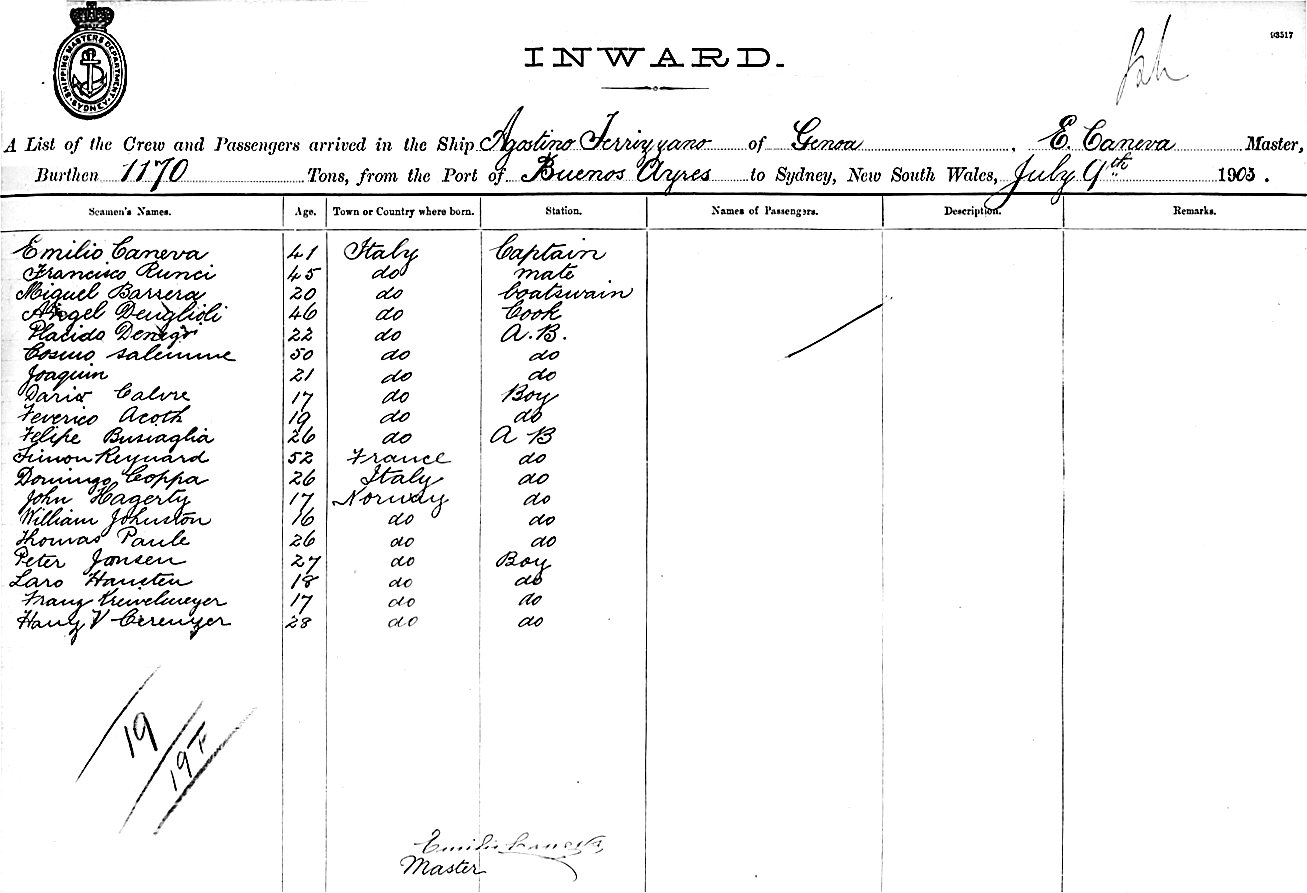 SHIPPING MASTERS DEPARTMENT. SYDNEY.
93517
INWARD.
A List of the Crew and Passengers arrived in the Ship Agostino of Genoa, E. Caneva Master,
Burthen 1170 Tons, from the Port of Buenos Ayres to Sydney, New South Wales, July 9th 1905.
Seamen's Names. Age. Town or Country where born. Station. Names of Passengers. Description. Remarks.
Emilio Caneva 41 Italy Captain
Francisco Runci 45 do mate
Miguel Barrera 20 do boatswain
Angel 46 do Cook
Placido Denegri 22 do A.B.
Cosmo Salemme 50 do do
Joaquin 21 do do
Dario Calvre 17 do Boy
Feverico Acoth 19 do do
Felipe Busiaglia 26 do A B
Simon Reynard 52 France do
Domingo Coppa 26 Italy do
John Hagerty 17 Norway do
William Johnston 16 do do
Thomas Paule 26 do do
Peter Jonsen 27 do Boy
Lars Hansten 18 do do
Franz 17 do do
V 28 do do
19
19
Emilio Caneva
Master